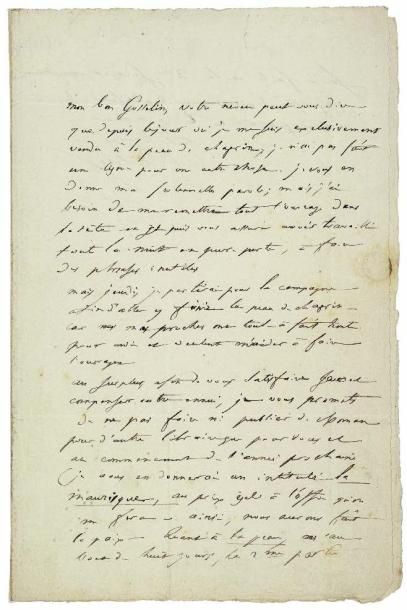 mon bon Gosselin, votre neveu peut vous dire
que depuis le jour où je me suis exclusivement
vendu à la peau de chagrin, je n'ai pas fait
une ligne pour une autre chose. je vous en
donne ma solennelle parole; mais j'ai
besoin de me remettre tout l'ouvrage dans
la tête et je puis vous assurer avoir travaillé
toute la nuit en pure perte, à faire
des phrases inutiles
mais jeudi, je partirai pour la campagne
afin d'aller y finir la peau de chagrin
car mes
pour moi et veulent m'aider à faire
l'ouvrage
au surplus, afin de vous satisfaire et
compenser votre ennui, je vous promets
de ne pas faire ni publier de roman
pour d'autre libraire que pour vous et
au commencement de l'année prochaine
je vous en donnerai un intitulé la
mauresque, au prix égal à l'offre qu'on
me fera - ainsi, nous aurons fait
la paix - Quant à la peau, au
bout de huit jours, le 2me partie